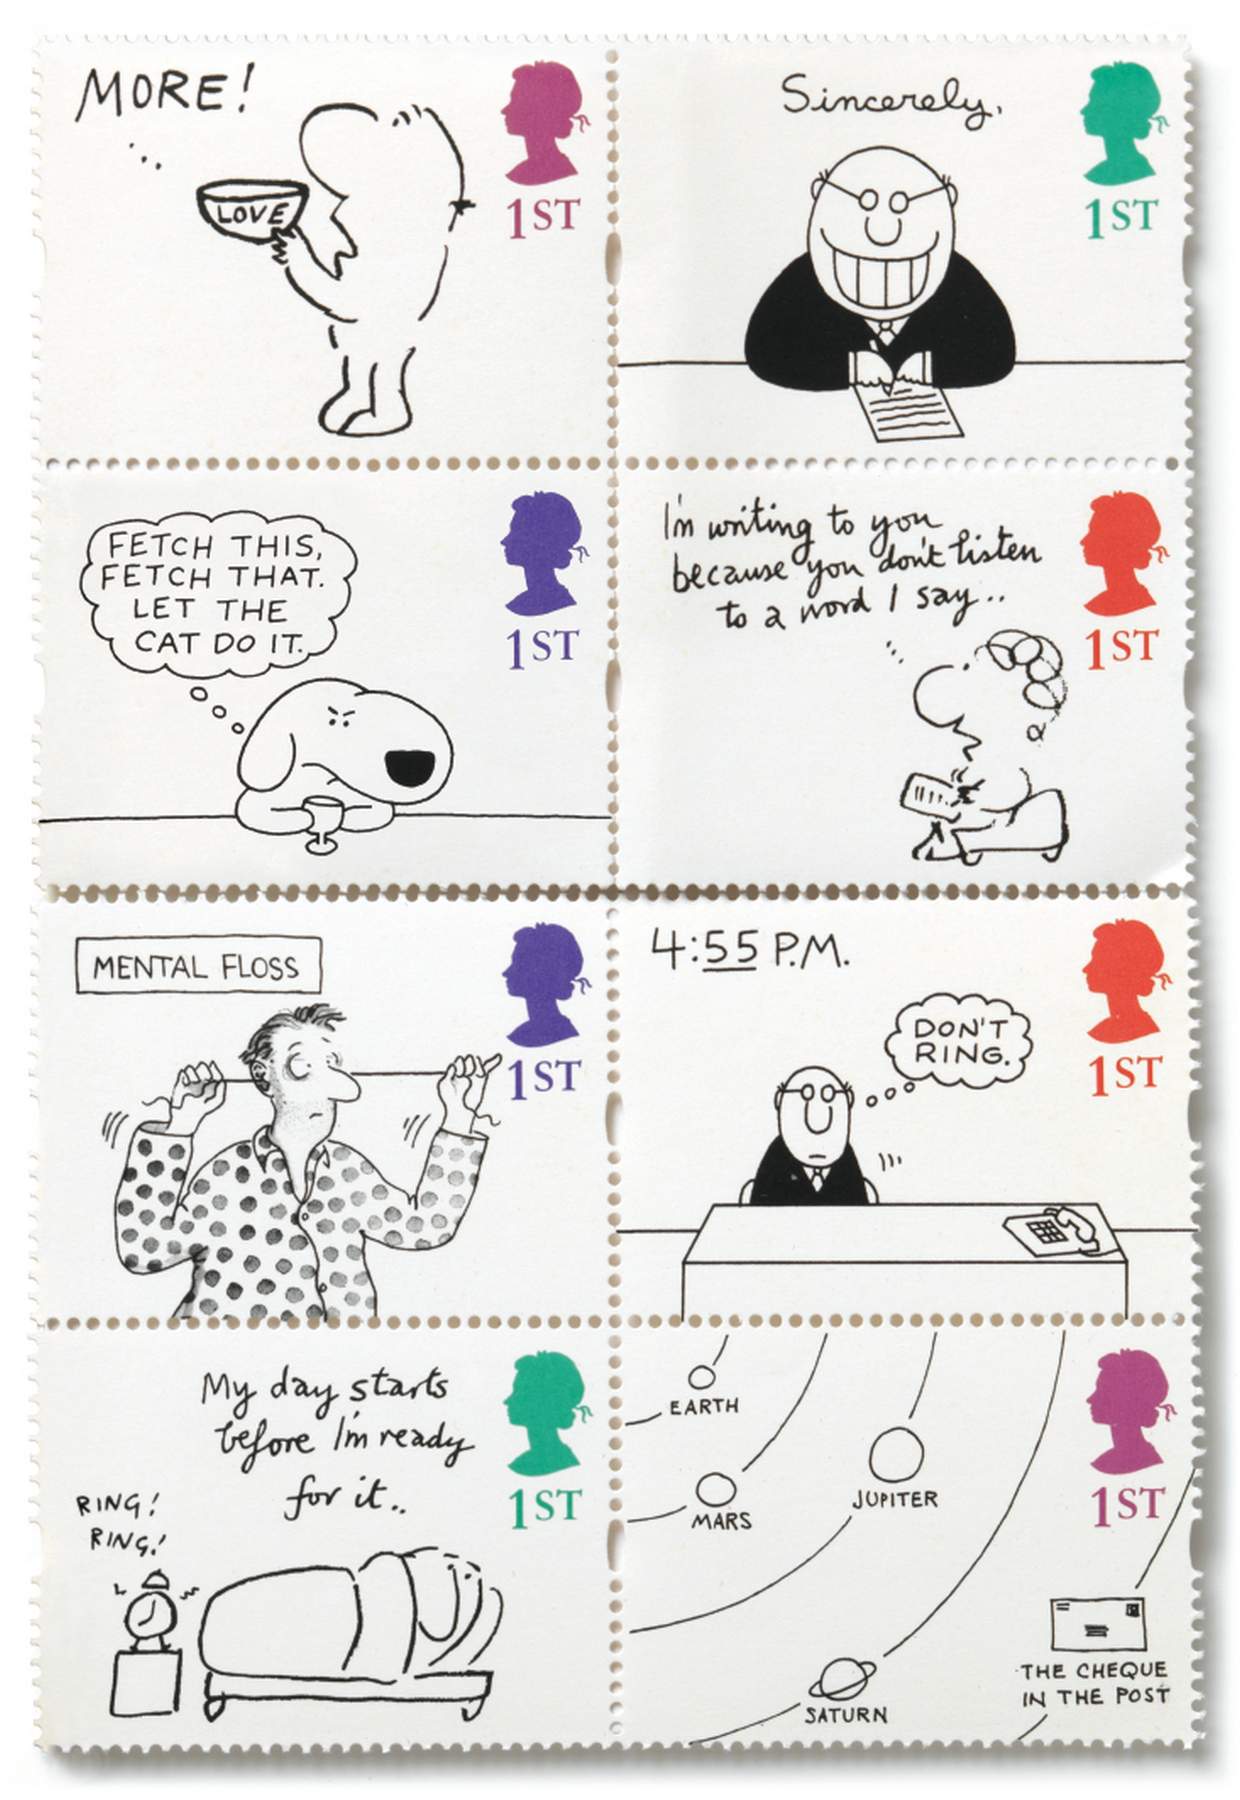 MORE!
LOVE
1ST
Sincerely,
1ST
FETCH THIS,
FETCH THAT.
LET THE
CAT DO IT.
1ST
I'm writing to you
because you don't listen
to a word I say..
1ST
MENTAL FLOSS
1ST
4:55 P.M.
DON'T
RING.
1ST
My day starts
before I'm ready
for it..
RING!
RING!
1ST
EARTH
MARS
JUPITER
SATURN
1ST
THE CHEQUE
IN THE POST